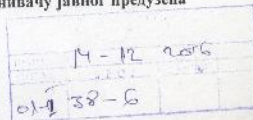 нивачу јавног предузећа
14-12 2016
01-1 38-6